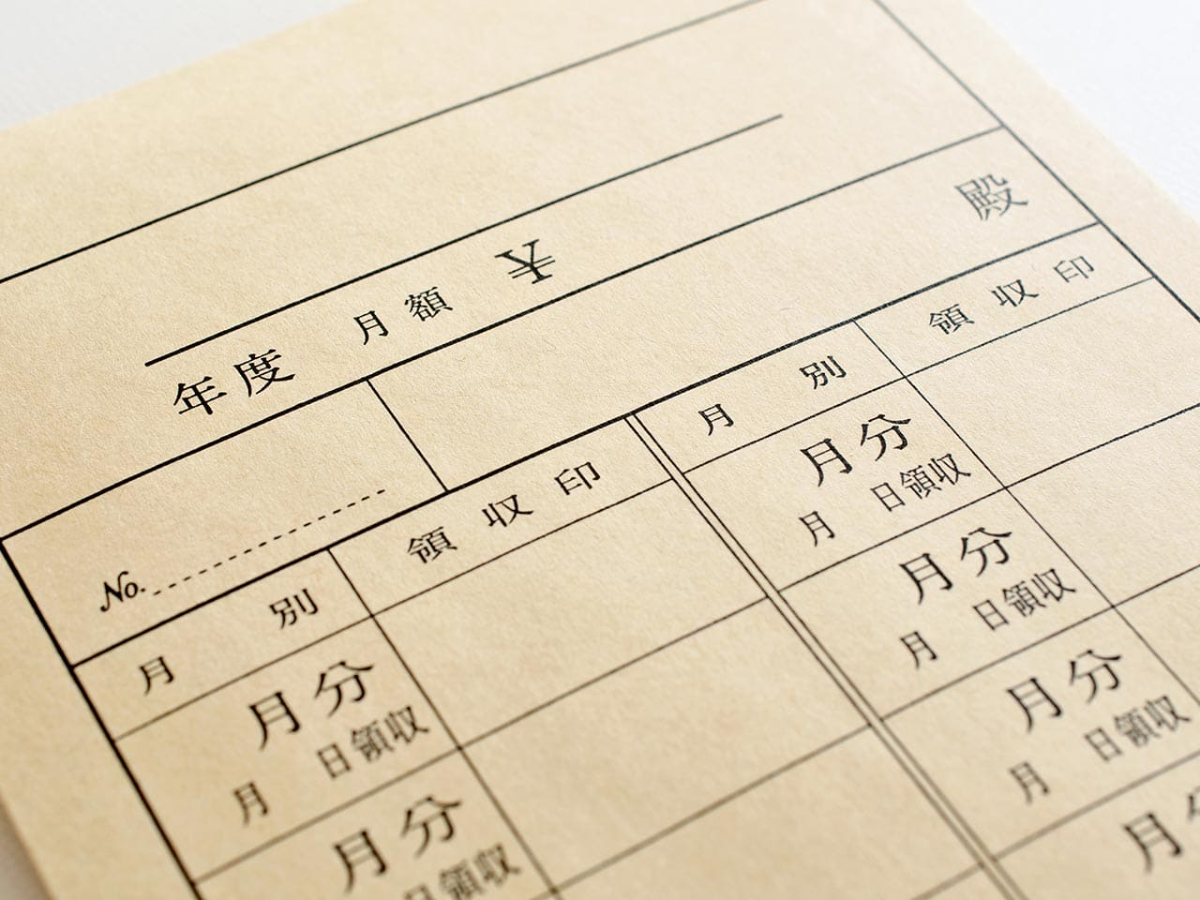 殿
年度 月額 ¥
No.
月別 領収印 月別 領収印
月分 月分
月 日領収 月 日領収
月分 月分
日領収 月 日領収
月分
月 日領収
月